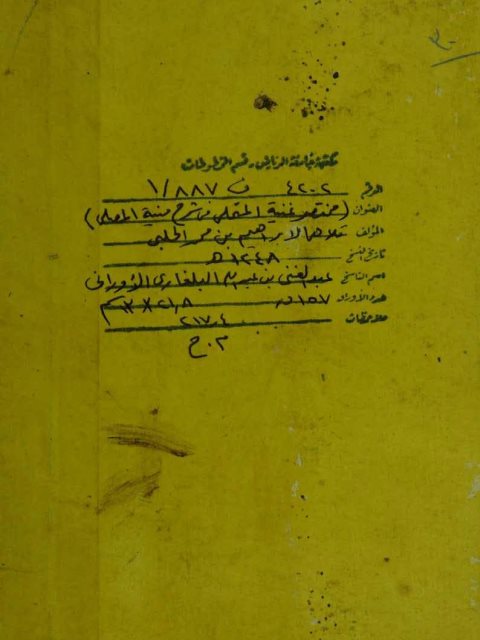 ٣٠
مكتبة جامعة الرياض - قسم المخطوطات
الرقم ٤٢٠٢ ف ١/٨٨٧
العنوان (مختصر غنية المتملي في شرح منية المصلي)
المؤلف كلاهما لابراهيم بن محمد الحلبي
تاريخ النسخ ١٢٤٨ هـ
اسم الناسخ عبد الغني بن عبد الله البلغاري
عدد الأوراق ١٥٧ ق
ملاحظات ٢١٧٠٤
م.خ